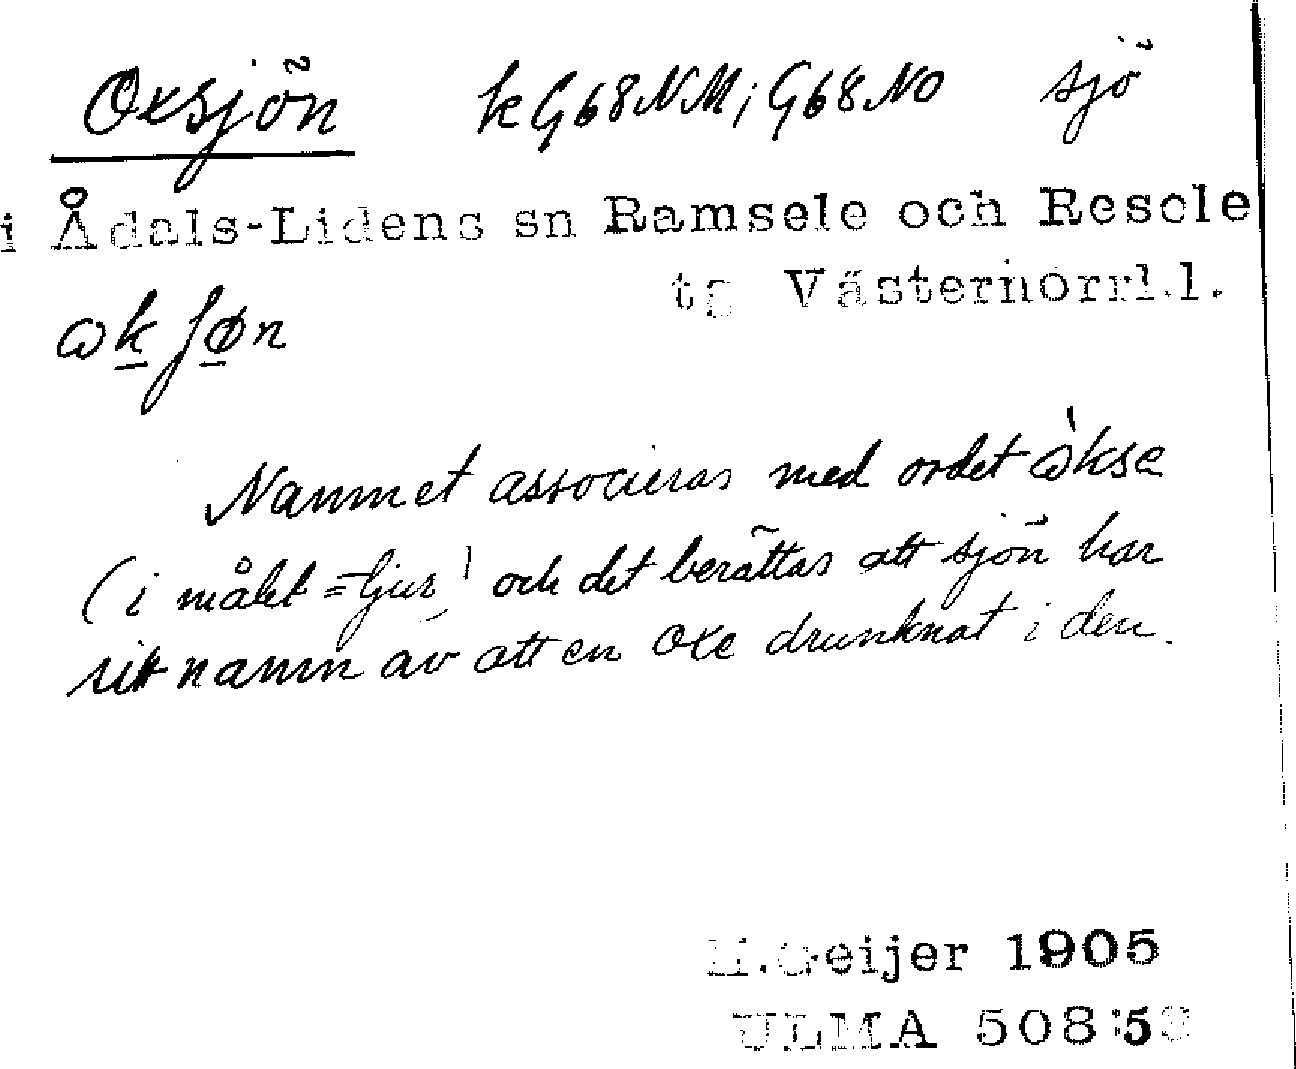 Oxsjön k G68NM; G68NO sjö
i Ådals-Lidens sn Ramsele och Resele
tg Västernorrl.l.
ωk ʃøn
Namnet associeras med ordet ὼksa
(i målet = tjur) och det berättas att sjön har
sitt namn av att en oxe drunknat i den.
H.Geijer 1905
ULMA 508:5